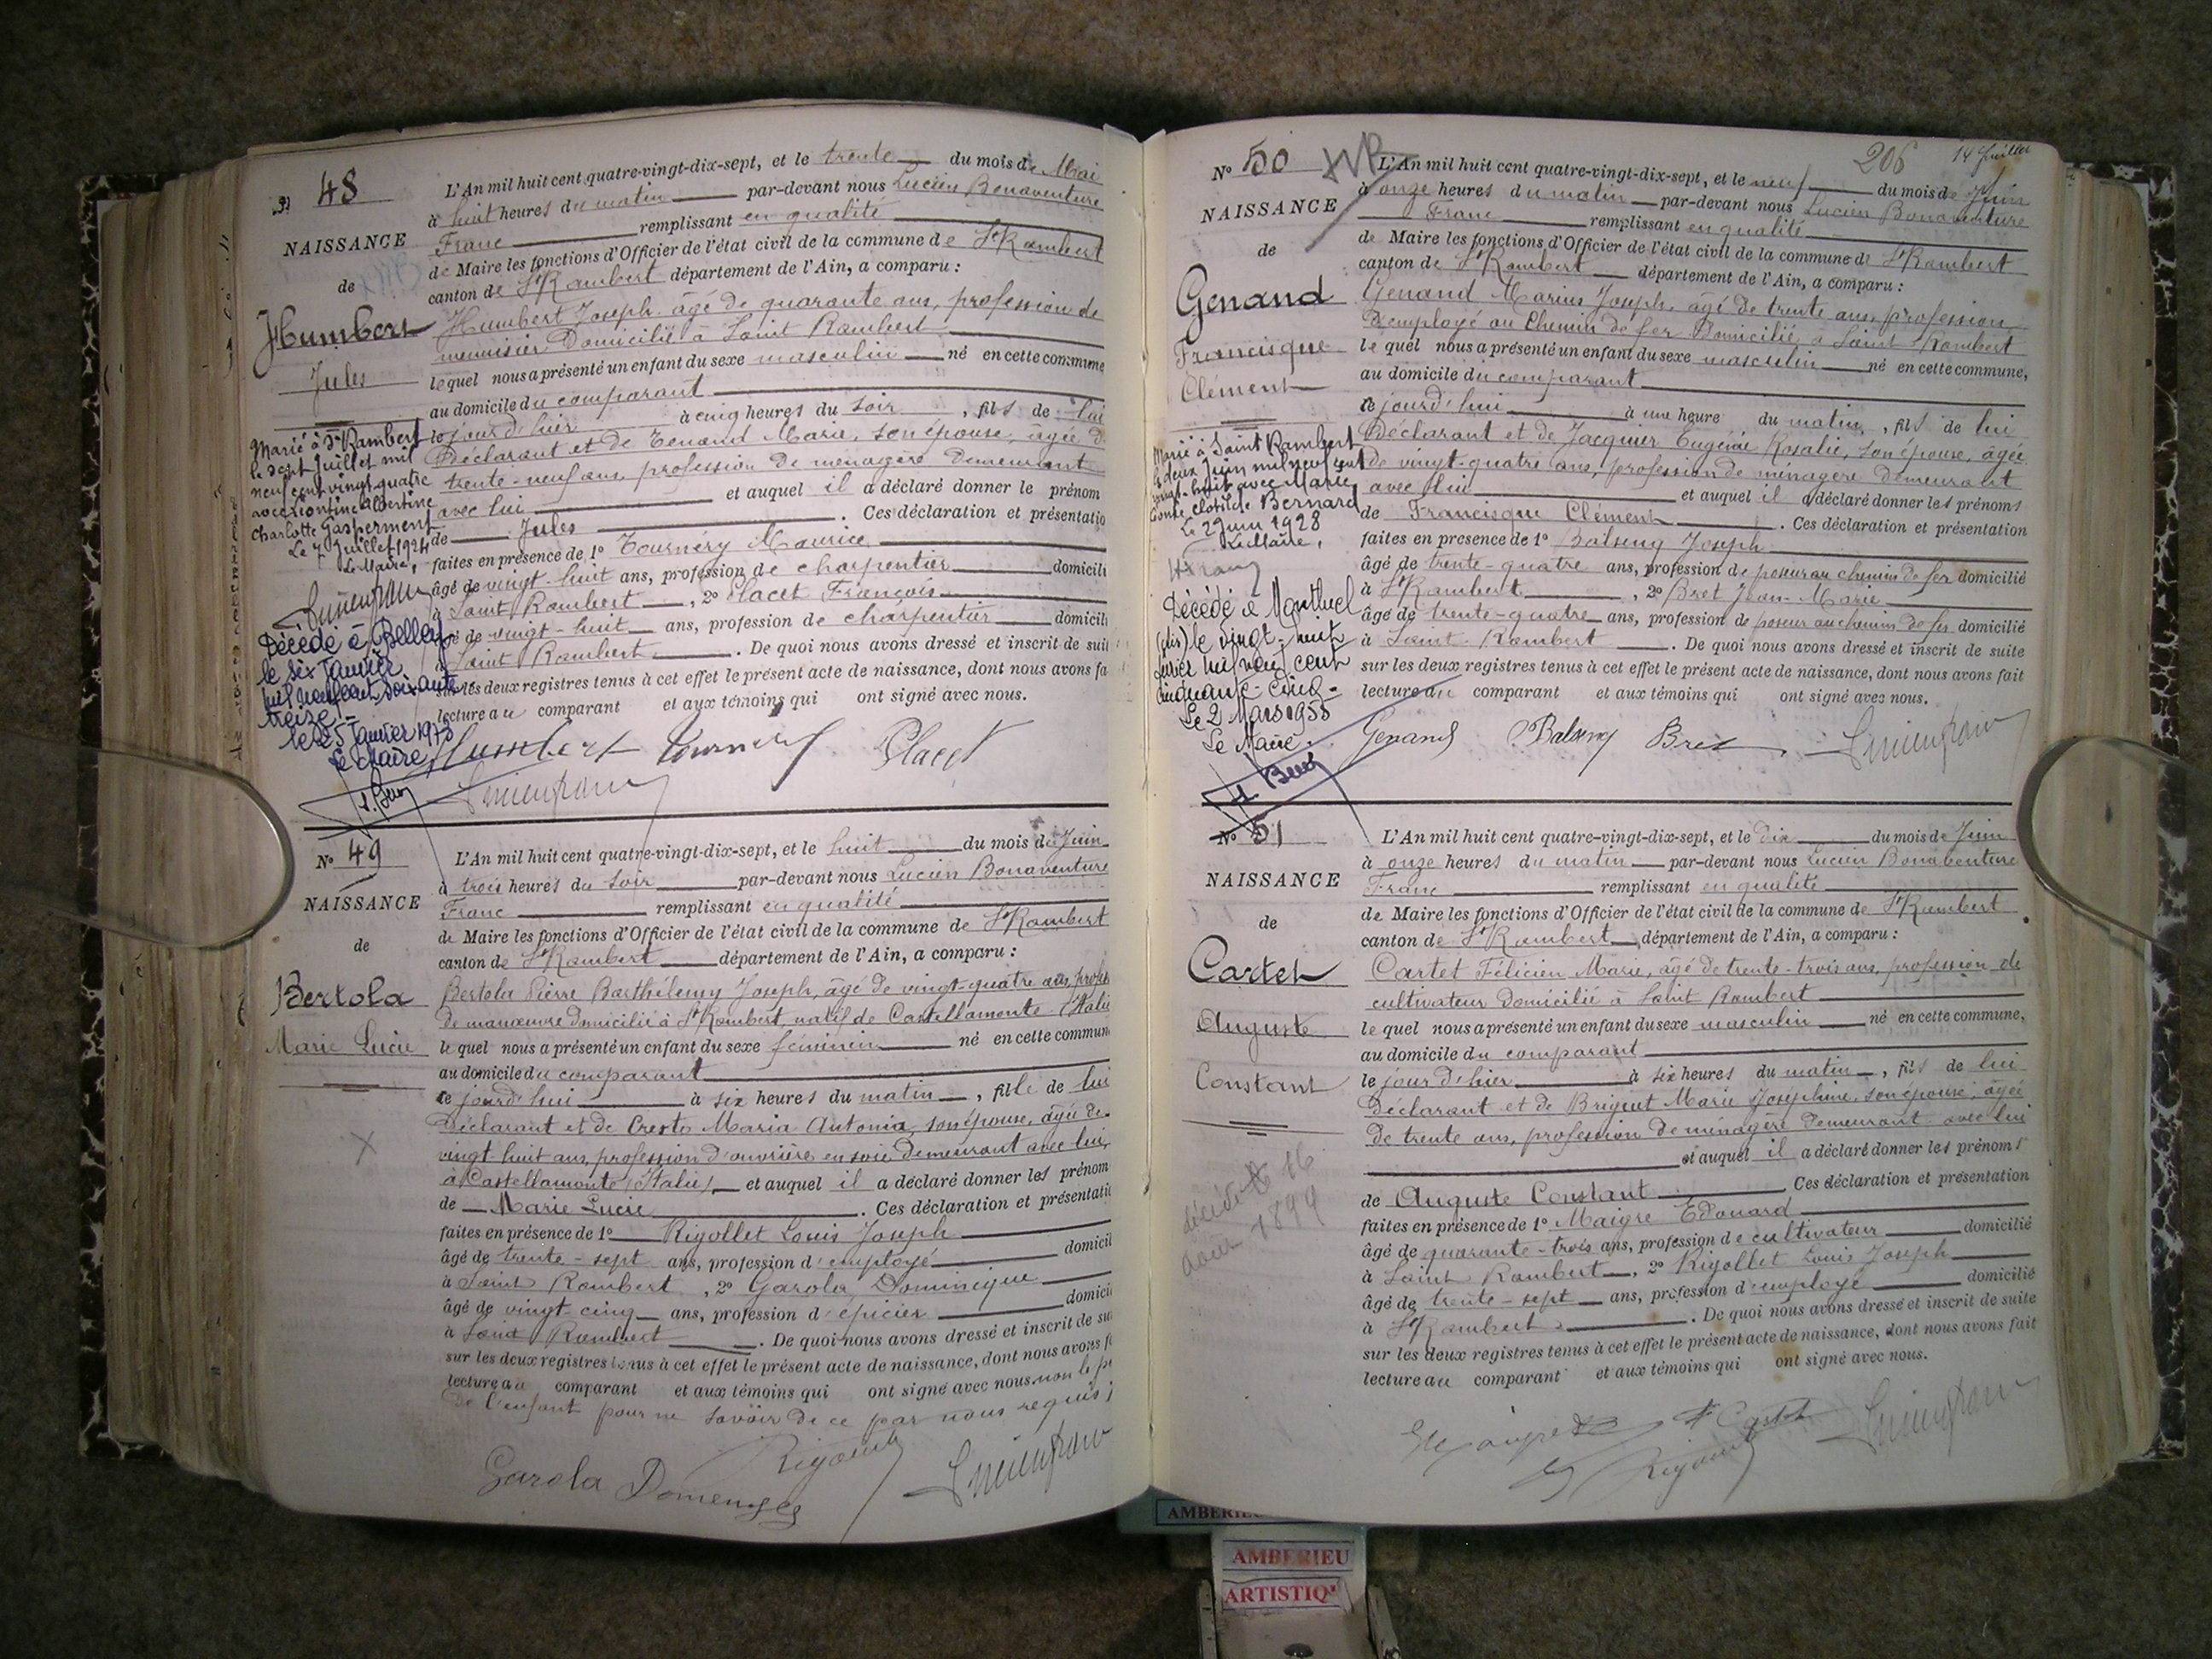 No 48
NAISSANCE
de
Humbert
Jules
L'An mil huit cent quatre-vingt-dix-sept, et le trente du mois de Mai
à huit heures du matin par-devant nous Lucien Bonaventure
Franc remplissant en qualité
de Maire les fonctions d'Officier de l'état civil de la commune de St Rambert
canton de St Rambert département de l'Ain, a comparu :
Humbert Joseph âgé de quarante ans, profession de
menuisier Domicilié à Saint Rambert
lequel nous a présenté un enfant du sexe masculin né en cette commune
au domicile du comparant
le jour d'hier à cinq heures du soir, fils de lui
Déclarant et de Tenand Marie, son épouse, âgée de
trente-neuf ans, profession de ménagère demeurant
avec lui et auquel il a déclaré donner le prénom
de Jules. Ces déclaration et présentatio
faites en présence de 1º Tournéry Maurice
âgé de vingt-huit ans, profession de charpentier domicili
à Saint Rambert, 2º Placet François
âgé de vingt-huit ans, profession de charpentier domicili
à Saint Rambert. De quoi nous avons dressé et inscrit de suit
sur les deux registres tenus à cet effet le présent acte de naissance, dont nous avons fa
lecture au comparant et aux témoins qui ont signé avec nous.
Humbert Tournery Placet
Lucien Franc
Marié à St Rambert
le sept Juillet mil
neuf cent vingt quatre
avec Léontine Albertine
Charlotte Gasperment
Le 7 Juillet 1924
Le Maire,
Lucien Franc
Décédé à Belley
le six Janvier
mil neuf cent soixante
treize.-
le 25 Janvier 1973
Le Maire
No 49
NAISSANCE
de
Bertola
Marie Lucie
L'An mil huit cent quatre-vingt-dix-sept, et le huit du mois de Juin
à trois heures du soir par-devant nous Lucien Bonaventure
Franc remplissant en qualité
de Maire les fonctions d'Officier de l'état civil de la commune de St Rambert
canton de St Rambert département de l'Ain, a comparu :
Bertola Pierre Barthélemy Joseph, âgé de vingt-quatre ans, profes
de manœuvre domicilié à St Rambert, natif de Castellamonte (Italie
lequel nous a présenté un enfant du sexe féminin né en cette commun
au domicile du comparant
ce jourd'hui à six heures du matin, fille de lui
Déclarant et de Cresto Maria Antonia, son épouse, âgée de
vingt-huit ans, profession d'ouvrière en soie demeurant avec lui,
à Castellamonte (Italie) et auquel il a déclaré donner les prénom
de Marie Lucie. Ces déclaration et présentati
faites en présence de 1º Rigollet Louis Joseph
âgé de trente-sept ans, profession d'employé domicil
à Saint Rambert, 2º Garola Dominique
âgé de vingt-cinq ans, profession d'épicier domici
à Saint Rambert. De quoi nous avons dressé et inscrit de su
sur les deux registres tenus à cet effet le présent acte de naissance, dont nous avons f
lecture au comparant et aux témoins qui ont signé avec nous non le p
de l'enfant pour ne savoir de ce par nous requis
Garola Domenico Rigollet Lucien Franc
206
14 Juillet
No 50
NAISSANCE
de
Genand
Francisque
Clément
L'An mil huit cent quatre-vingt-dix-sept, et le neuf du mois de Juin
à onze heures du matin par-devant nous Lucien Bonaventure
Franc remplissant en qualité
de Maire les fonctions d'Officier de l'état civil de la commune de St Rambert
canton de St Rambert département de l'Ain, a comparu :
Genand Marius Joseph, âgé de trente ans, profession
D'employé au Chemin de fer Domicilié à Saint Rambert
lequel nous a présenté un enfant du sexe masculin né en cette commune,
au domicile du comparant
ce jourd'hui à une heure du matin, fils de lui
Déclarant et de Jacquier Eugénie Rosalie, son épouse, âgée
de vingt-quatre ans, profession de ménagère demeurant
avec lui et auquel il a déclaré donner les prénoms
de Francisque Clément. Ces déclaration et présentation
faites en présence de 1º Balseng Joseph
âgé de trente-quatre ans, profession de poseur au chemin de fer domicilié
à St Rambert, 2º Bret Jean-Marie
âgé de trente-quatre ans, profession de poseur au chemin de fer domicilié
à Saint Rambert. De quoi nous avons dressé et inscrit de suite
sur les deux registres tenus à cet effet le présent acte de naissance, dont nous avons fait
lecture au comparant et aux témoins qui ont signé avec nous.
Genand Balseng Bret Lucien Franc
Marié à Saint Rambert
le deux Juin mil neuf cent
vingt-huit avec Marie
Clotilde Bernard
Le 2 Juin 1928
Le Maire,
Décédé à Montluel
(Ain) le vingt-huit
février mil neuf cent
cinquante-cinq.
Le 2 Mars 1955
Le Maire.
No 51
NAISSANCE
de
Cartet
Auguste
Constant
L'An mil huit cent quatre-vingt-dix-sept, et le dix du mois de Juin
à onze heures du matin par-devant nous Lucien Bonaventure
Franc remplissant en qualité
de Maire les fonctions d'Officier de l'état civil de la commune de St Rambert
canton de St Rambert département de l'Ain, a comparu :
Cartet Félicien Marie, âgé de trente-trois ans, profession de
cultivateur Domicilié à Saint Rambert
lequel nous a présenté un enfant du sexe masculin né en cette commune,
au domicile du comparant
le jour d'hier à six heures du matin, fils de lui
Déclarant et de Briguet Marie Joséphine, son épouse, âgée
de trente ans, profession de ménagère demeurant avec lui
et auquel il a déclaré donner les prénoms
de Auguste Constant Ces déclaration et présentation
faites en présence de 1º Maigre Edouard
âgé de quarante-trois ans, profession de cultivateur domicilié
à Saint Rambert, 2º Rigollet Louis Joseph
âgé de trente-sept ans, profession d'employé domicilié
à St Rambert. De quoi nous avons dressé et inscrit de suite
sur les deux registres tenus à cet effet le présent acte de naissance, dont nous avons fait
lecture au comparant et aux témoins qui ont signé avec nous.
décédé le 16
Août 1899
AMBERIEU
ARTISTIQ